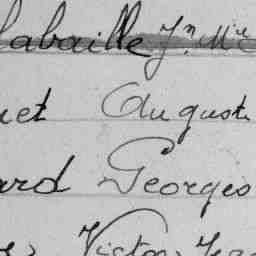 labaille Jn Mie
uet Auguste
ard Georges
Victor Jean